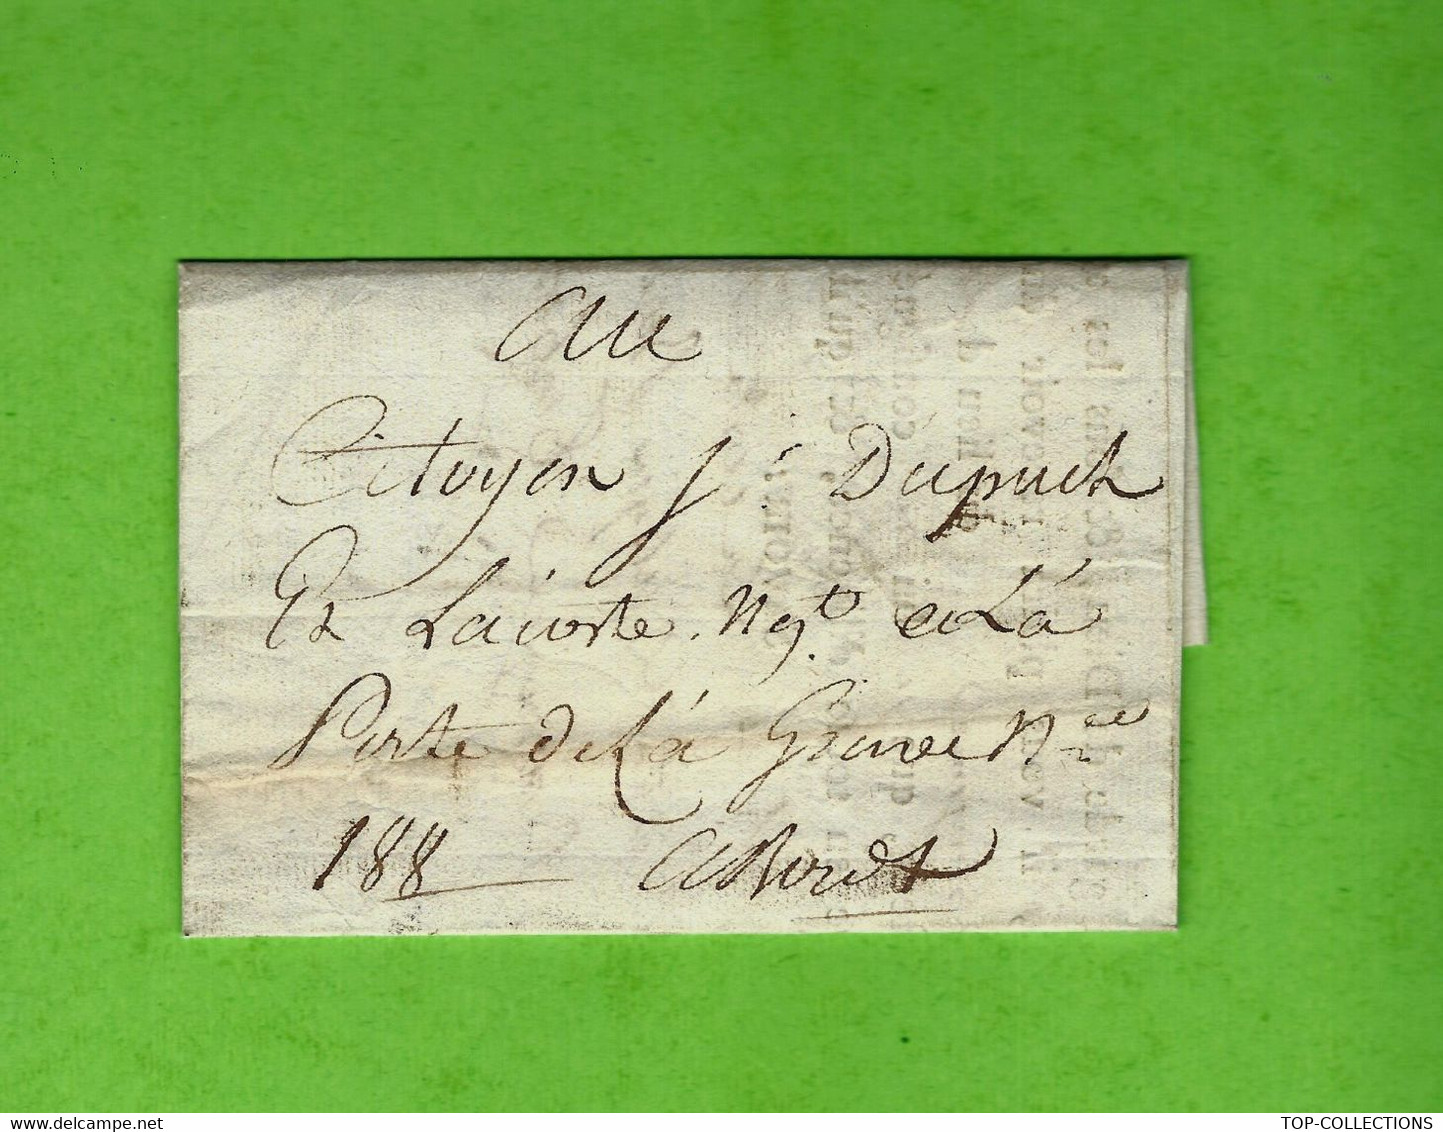 Au
Citoyen J Dupuch
Et Lacoste Ngt a La
Porte de La Grave Nro
188 A Bord x
www.delcampe.net
TOP-COLLECTIONS